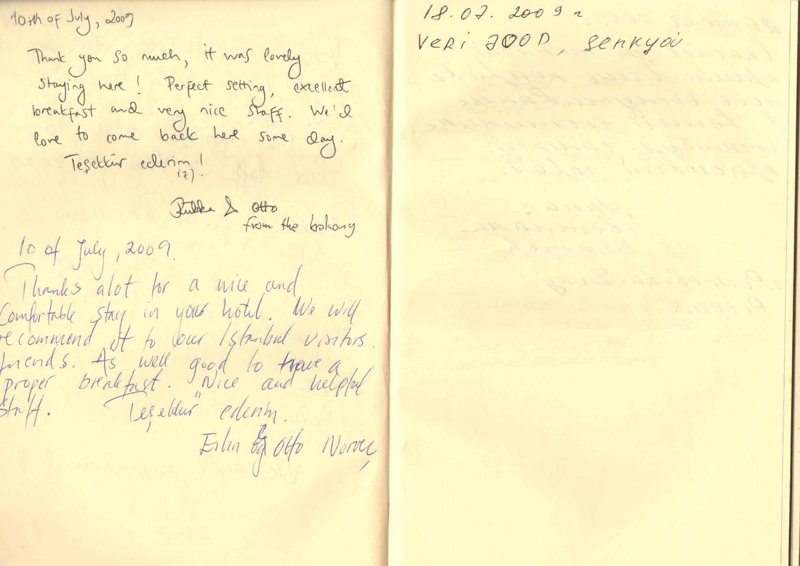 10th of July, 2009
Thank you so much, it was lovely
staying here! Perfect setting, excellent
breakfast and very nice staff. We'd
love to come back here some day.
Teşekkür ederim!
(?)
& Otto
from the
10 of July, 2009.
Thanks alot for a nice and
Comfortable stay in your hotel. We will
recommend it to our Istanbul visitors.
friends. As well good to have a
proper breakfast. Nice and helpful
staff. Teşekkür ederim.
Otto Norveç
18.07.2009 г
Veri JOOD, senkyou